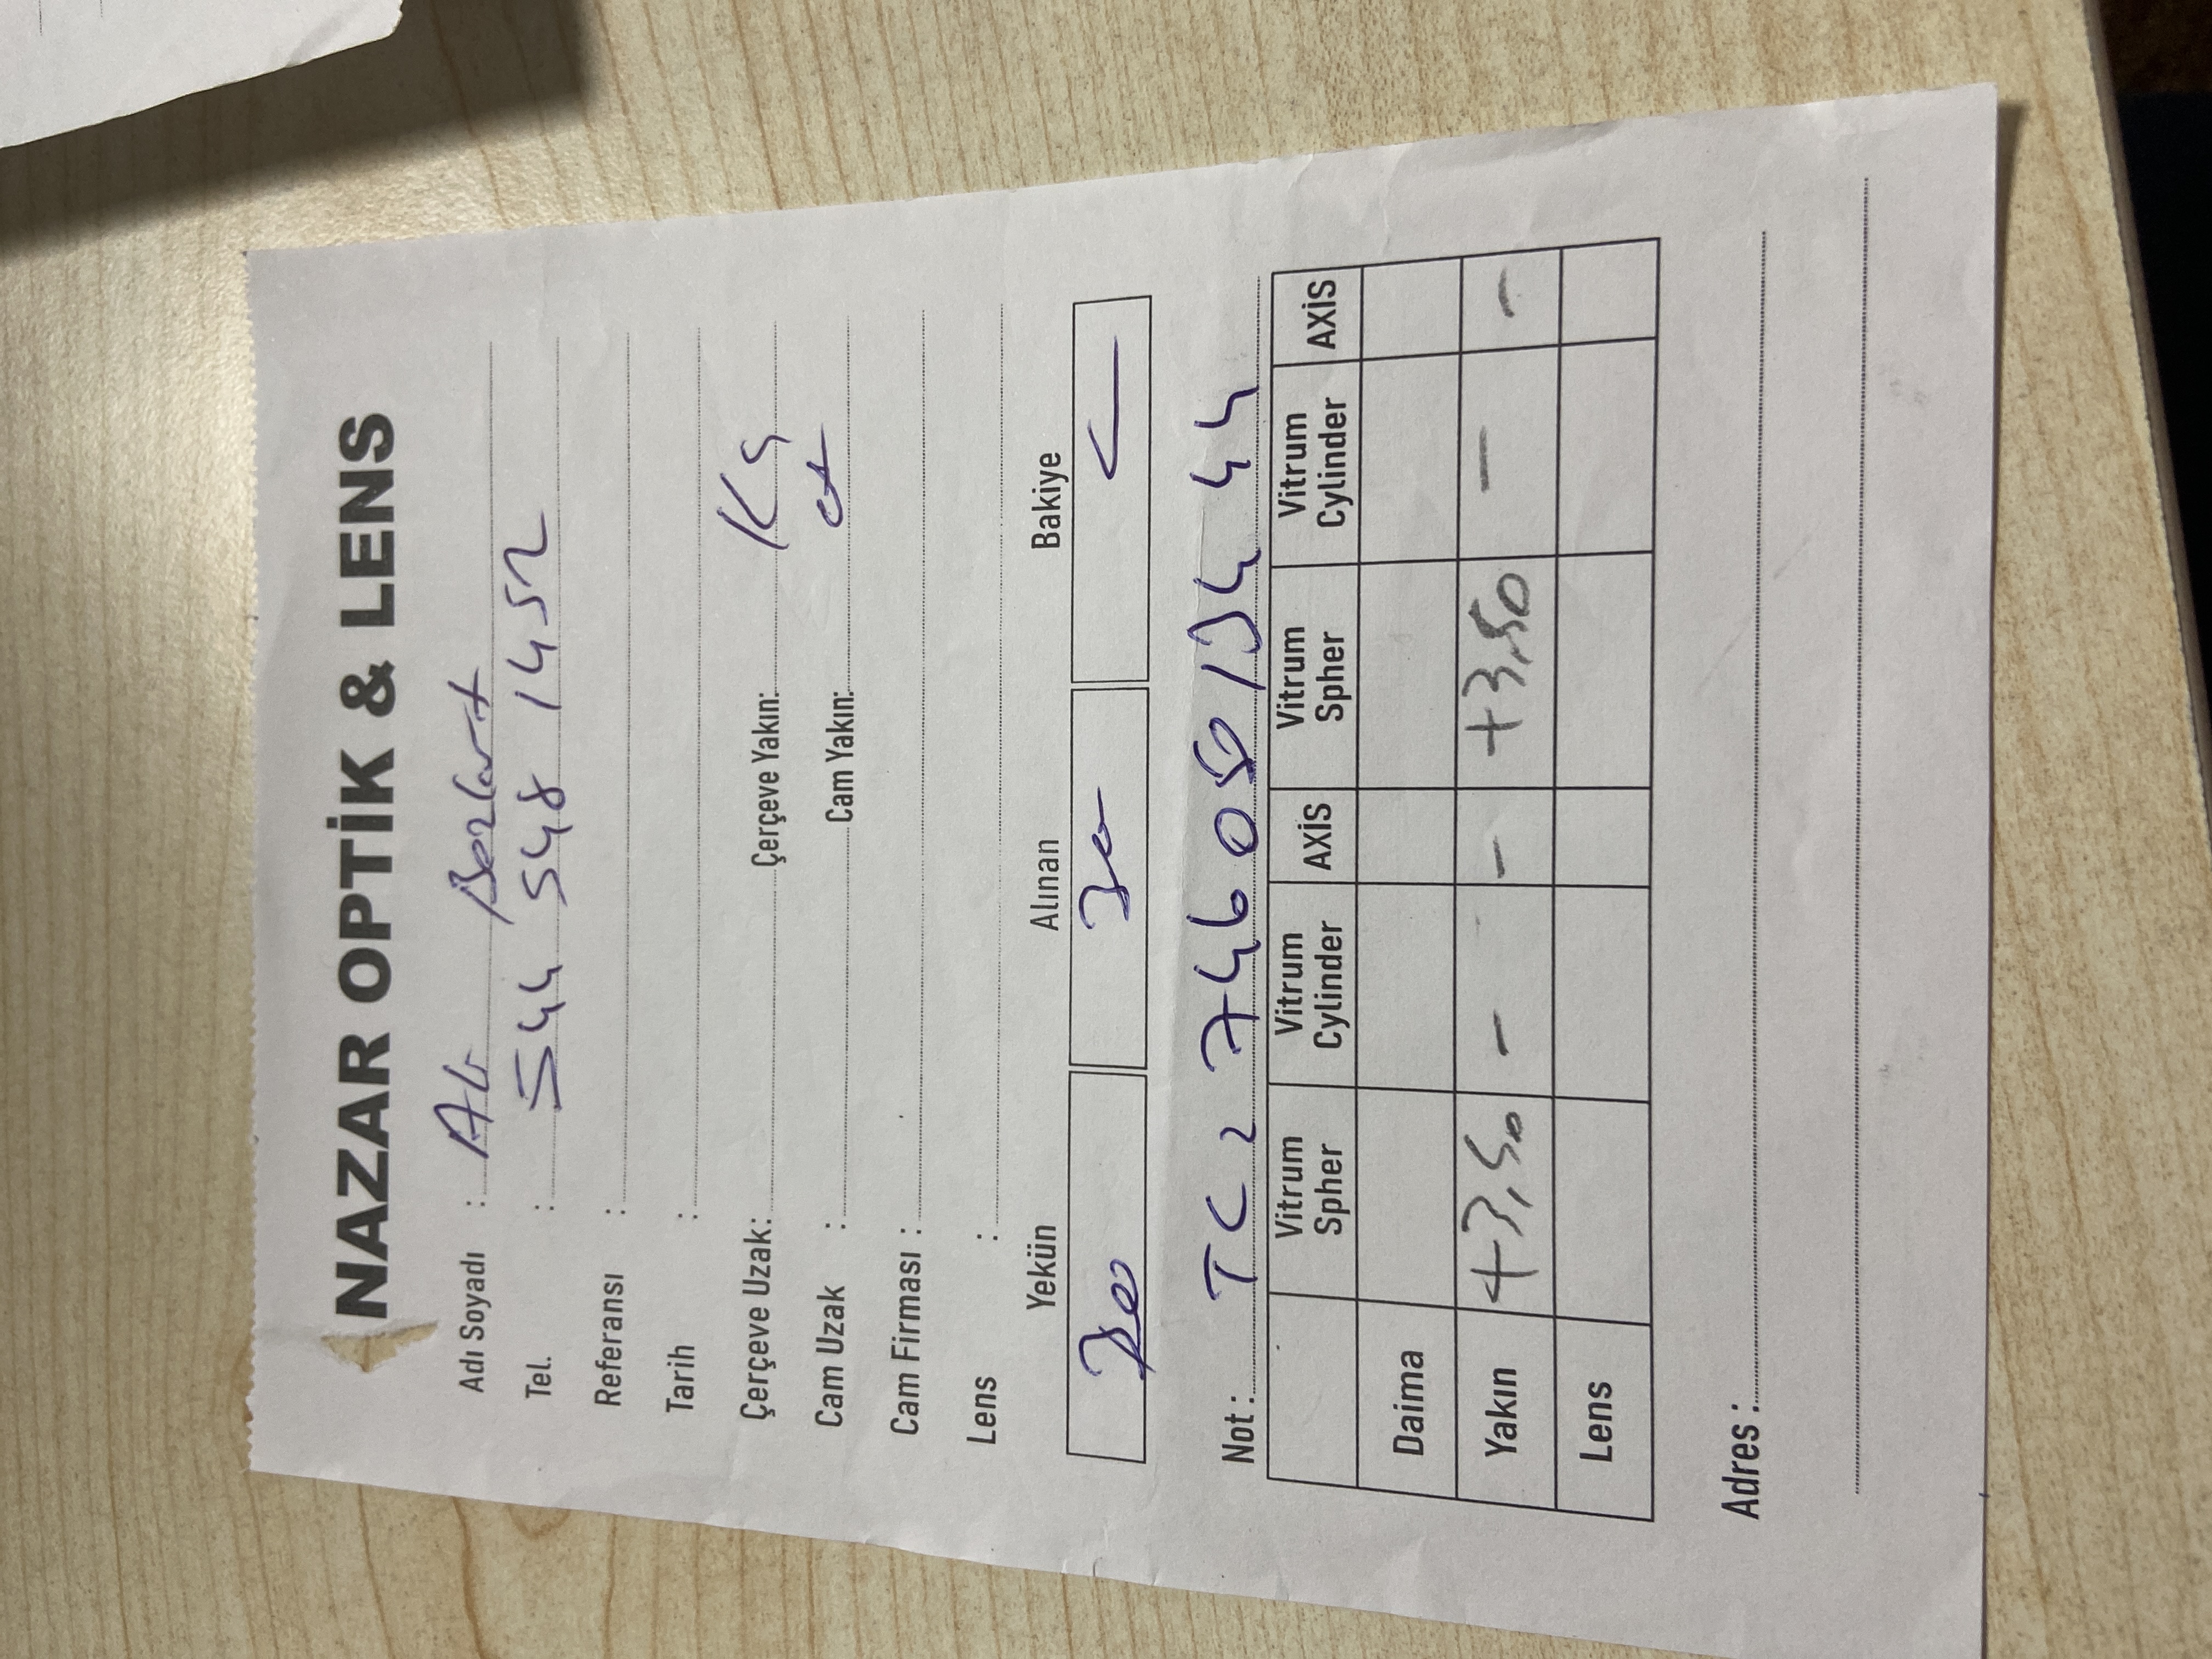 NAZAR OPTİK & LENS
Adı Soyadı : Ali Bozkurt
Tel. : 544 548 1452
Referansı :
Tarih :
Çerçeve Uzak: Çerçeve Yakın: Kç
Cam Uzak : Cam Yakın:
Cam Firması :
Lens :
Yekün Alınan Bakiye
Not : TC 746 1344 44
Vitrum Spher Vitrum Cylinder AXİS Vitrum Spher Vitrum Cylinder AXİS
Daima
Yakın +3,50 - - +3,50 - -
Lens
Adres :